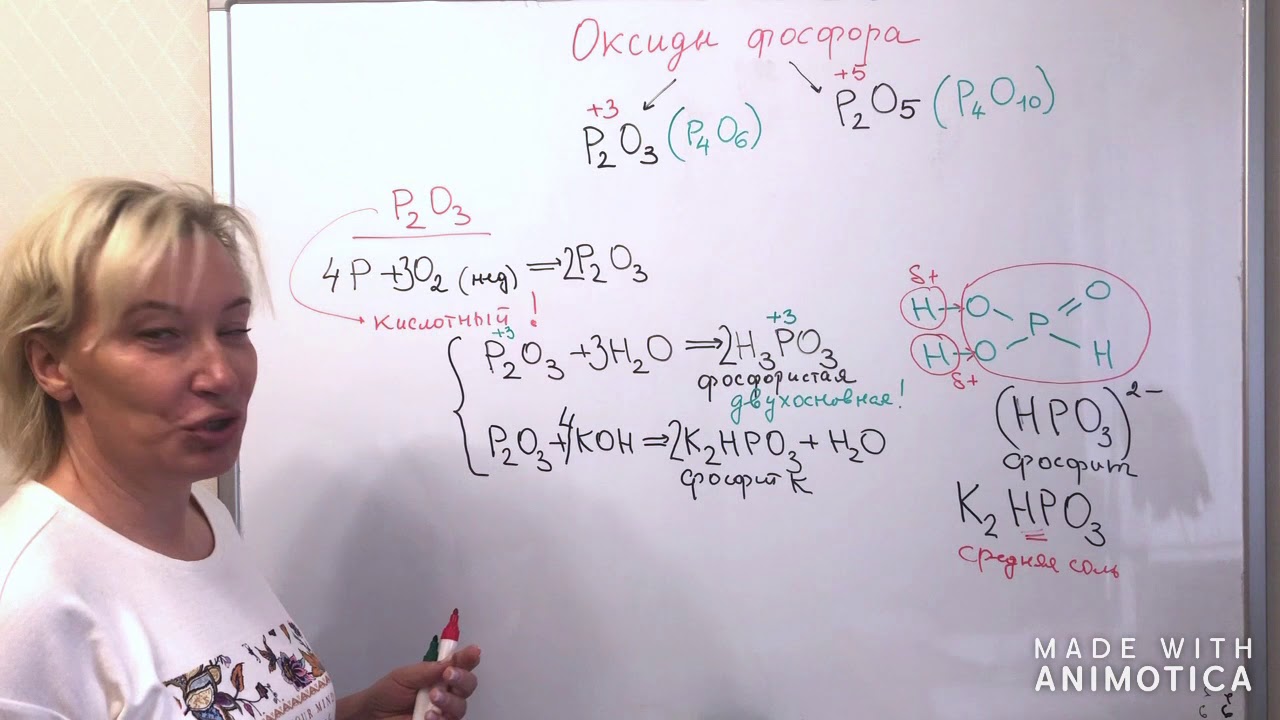 Оксиды фосфора
+3
P₂O₃ (P₄O₆)
+5
P₂O₅ (P₄O₁₀)
P₂O₃
4P + 3O₂ (нед) ⇒ 2P₂O₃
кислотный !
+3 +3
P₂O₃ + 3H₂O ⇒ 2H₃PO₃
фосфористая
двухосновная!
P₂O₃ + 4KOH ⇒ 2K₂HPO₃ + H₂O
фосфит K
δ+
H → O O
P
H → O H
δ+
(HPO₃)²⁻
фосфит
K₂HPO₃
средняя соль
MADE WITH
ANIMOTICA